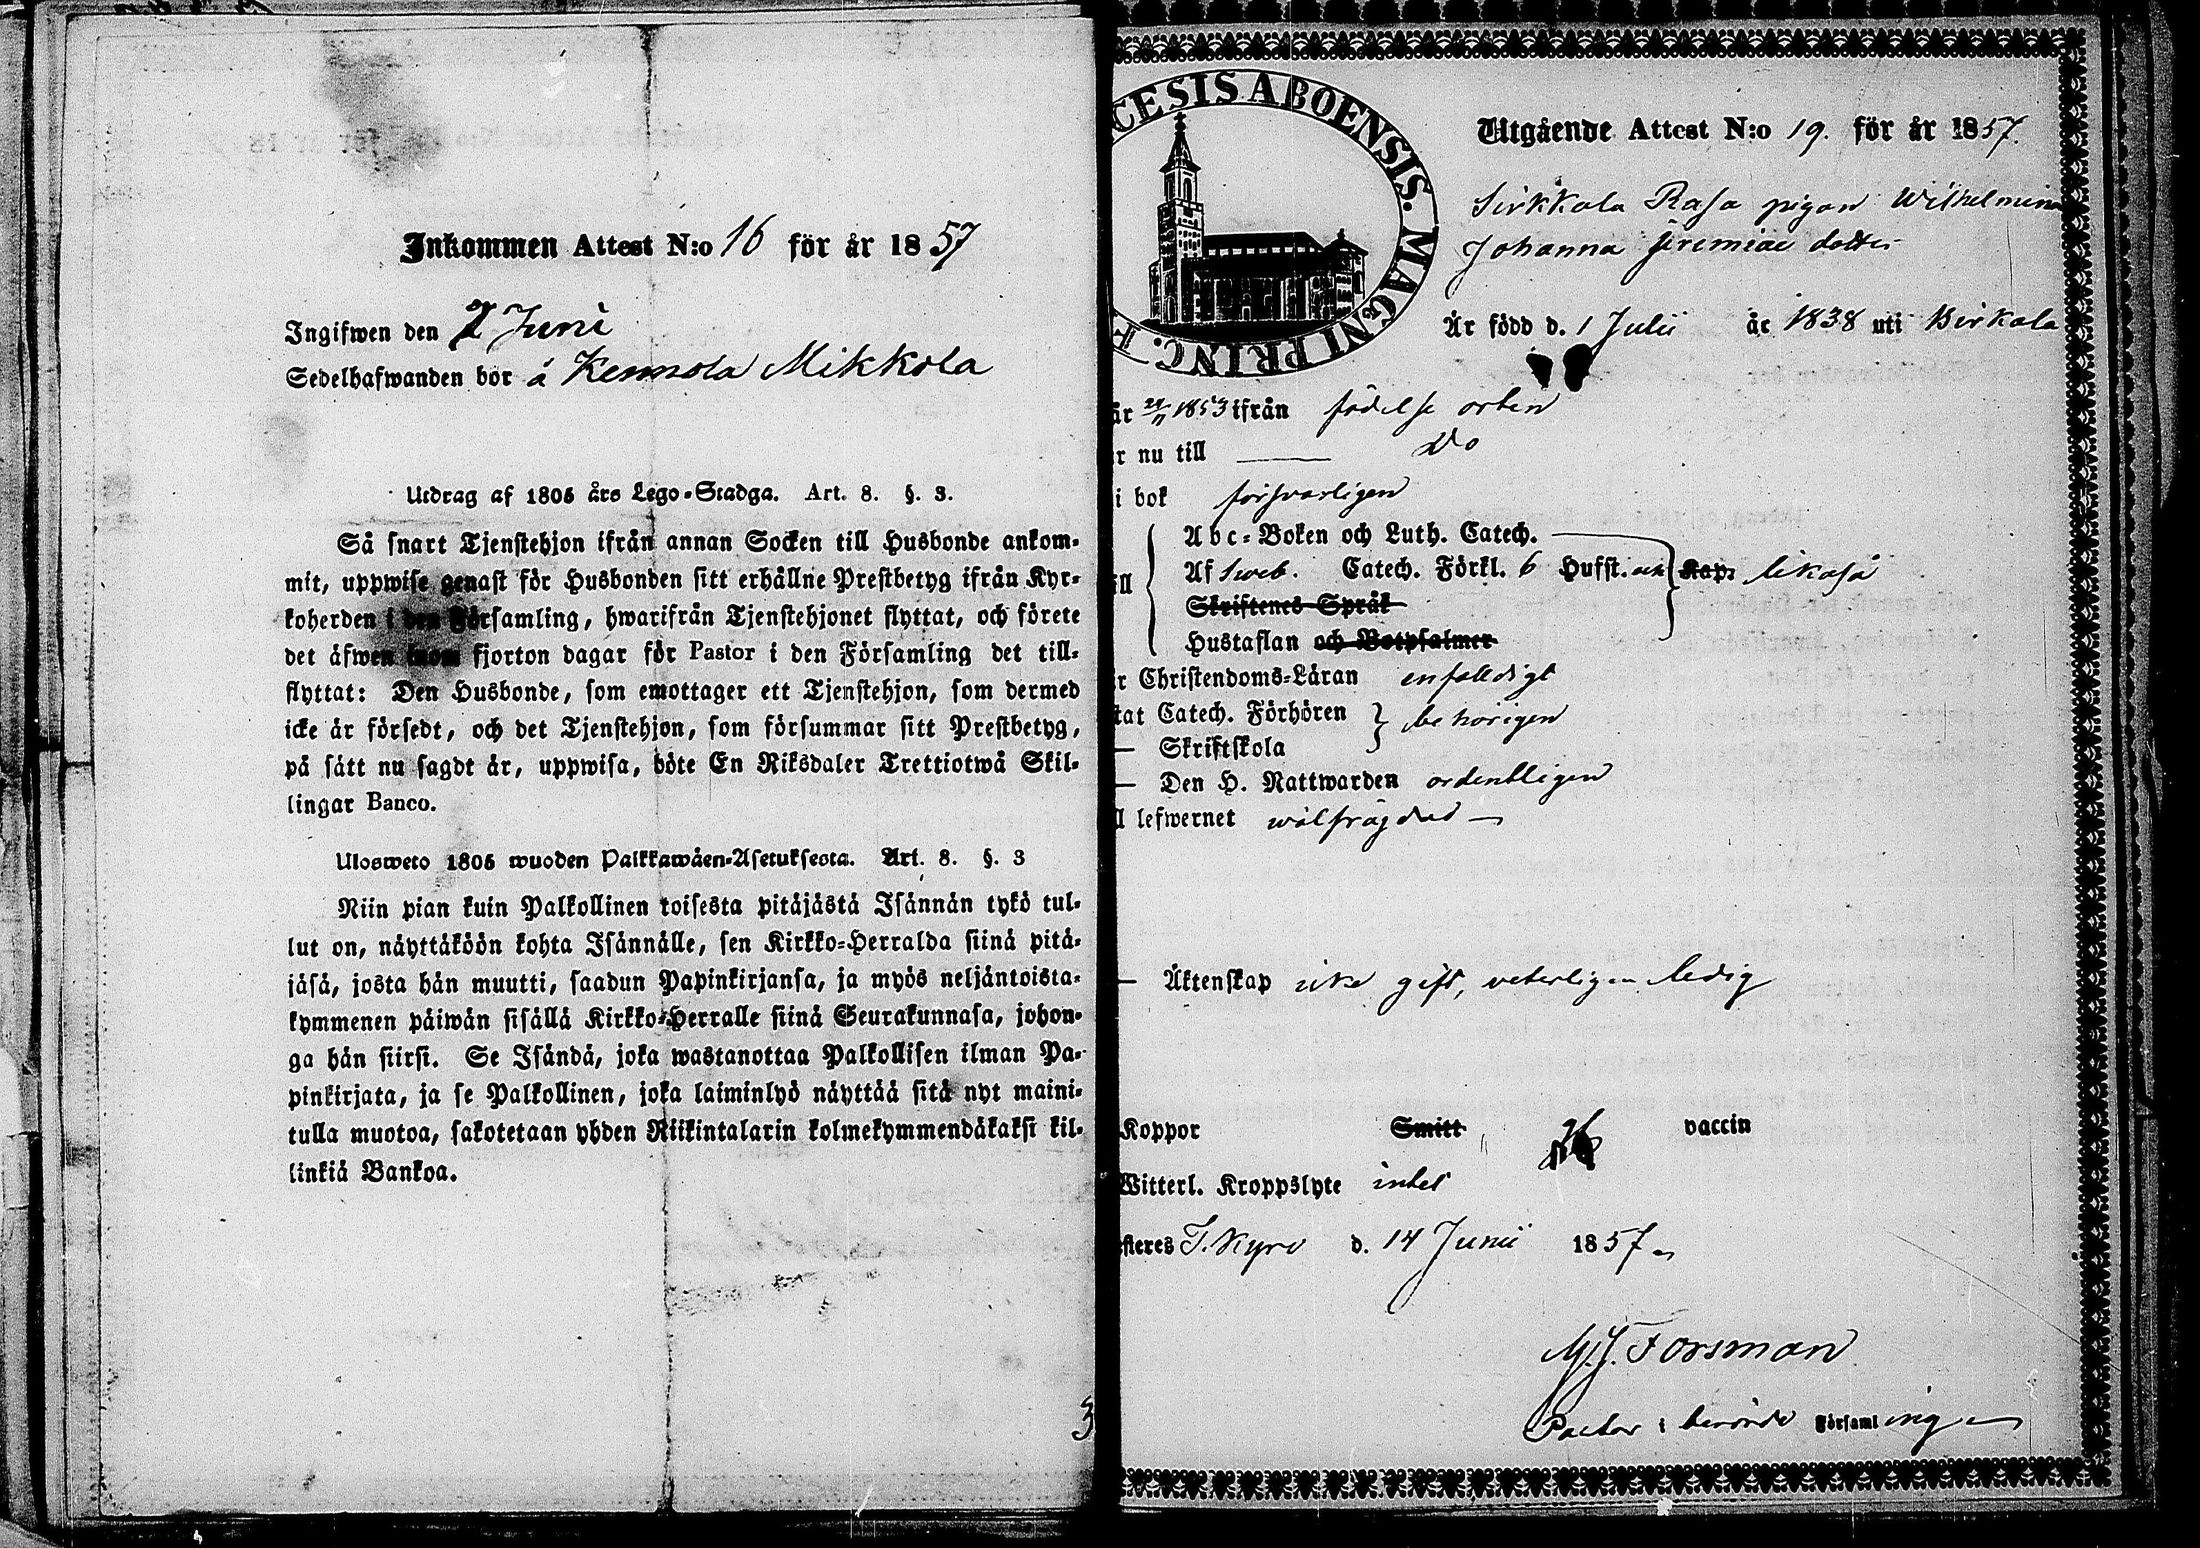 Inkommen Attest N:o 16 för år 1857
Ingifwen den 2 Juni
Sedelhafwanden bor å Kennola Mikkola
Utdrag af 1805 års Lego-Stadga. Art. 8. §. 3.
Så snart Tjenstehjon ifrån annan Socken till Husbonde ankom-
mit, uppwise genast för Husbonden sitt erhållne Prestbetyg ifrån Kyr-
koherden i den Församling, hwarifrån Tjenstehjonet flyttat, och förete
det äfwen inom fjorton dagar för Pastor i den Församling det till-
flyttat: Den Husbonde, som emottager ett Tjenstehjon, som dermed
icke är försedt, och det Tjenstehjon, som försummar sitt Prestbetyg,
på sätt nu sagdt är, uppwisa, böte En Riksdaler Trettiotwå Skil-
lingar Banco.
Ulosweto 1805 wuoden Palkkawäen-Asetuksesta. Art. 8. §. 3
Niin pian kuin Palkollinen toisesta pitäjästä Isännän tykö tul-
lut on, näyttäköön kohta Isännälle, sen Kirkko-Herralda siinä pitä-
jäsä, josta hän muutti, saadun Papinkirjansa, ja myös neljäntoista-
kymmenen päiwän sisällä Kirkko-Herralle siinä Seurakunnasa, johon-
ga hän siirsi. Se Isändä, joka wastanottaa Palkollisen ilman Pa-
pinkirjata, ja se Palkollinen, joka laiminlyö näyttää sitä nyt maini-
tulla muotoa, sakotetaan yhden Riikintalarin kolmekymmendäkaksi kil-
linkiä Bankoa.
3
CESIS ABOENSIS. MAGNI PRINC. F
Utgående Attest N:o 19. för år 1857.
Sirkkala Rasa pigan Wilhelmina
Johanna Jeremiae dotter
Är född d. 1 Julii år 1838 uti Birkala
är 29/11 1853 ifrån födelse orten
r nu till Do
i bok försvarligen
Abc-Boken och Luth. Catech.
Af Sveb. Catech. Förkl. 6 Hufst. och Kap. likaså
Skriftenes Språk
Hustaflan och Botpsalmer
r Christendoms-Läran enfaldigt
tat Catech. Förhören behörigen
— Skriftskola
— Den H. Nattwarden ordentligen
l lefwernet wälfrägdad
— Äktenskap icke gift, veterligen ledig
Koppor Smitt vaccin
Witterl. Kroppslyte intet
esteres T. Kyro d. 14 Junii 1857
M.J. Forsman
Pastor i berörde Församlingen